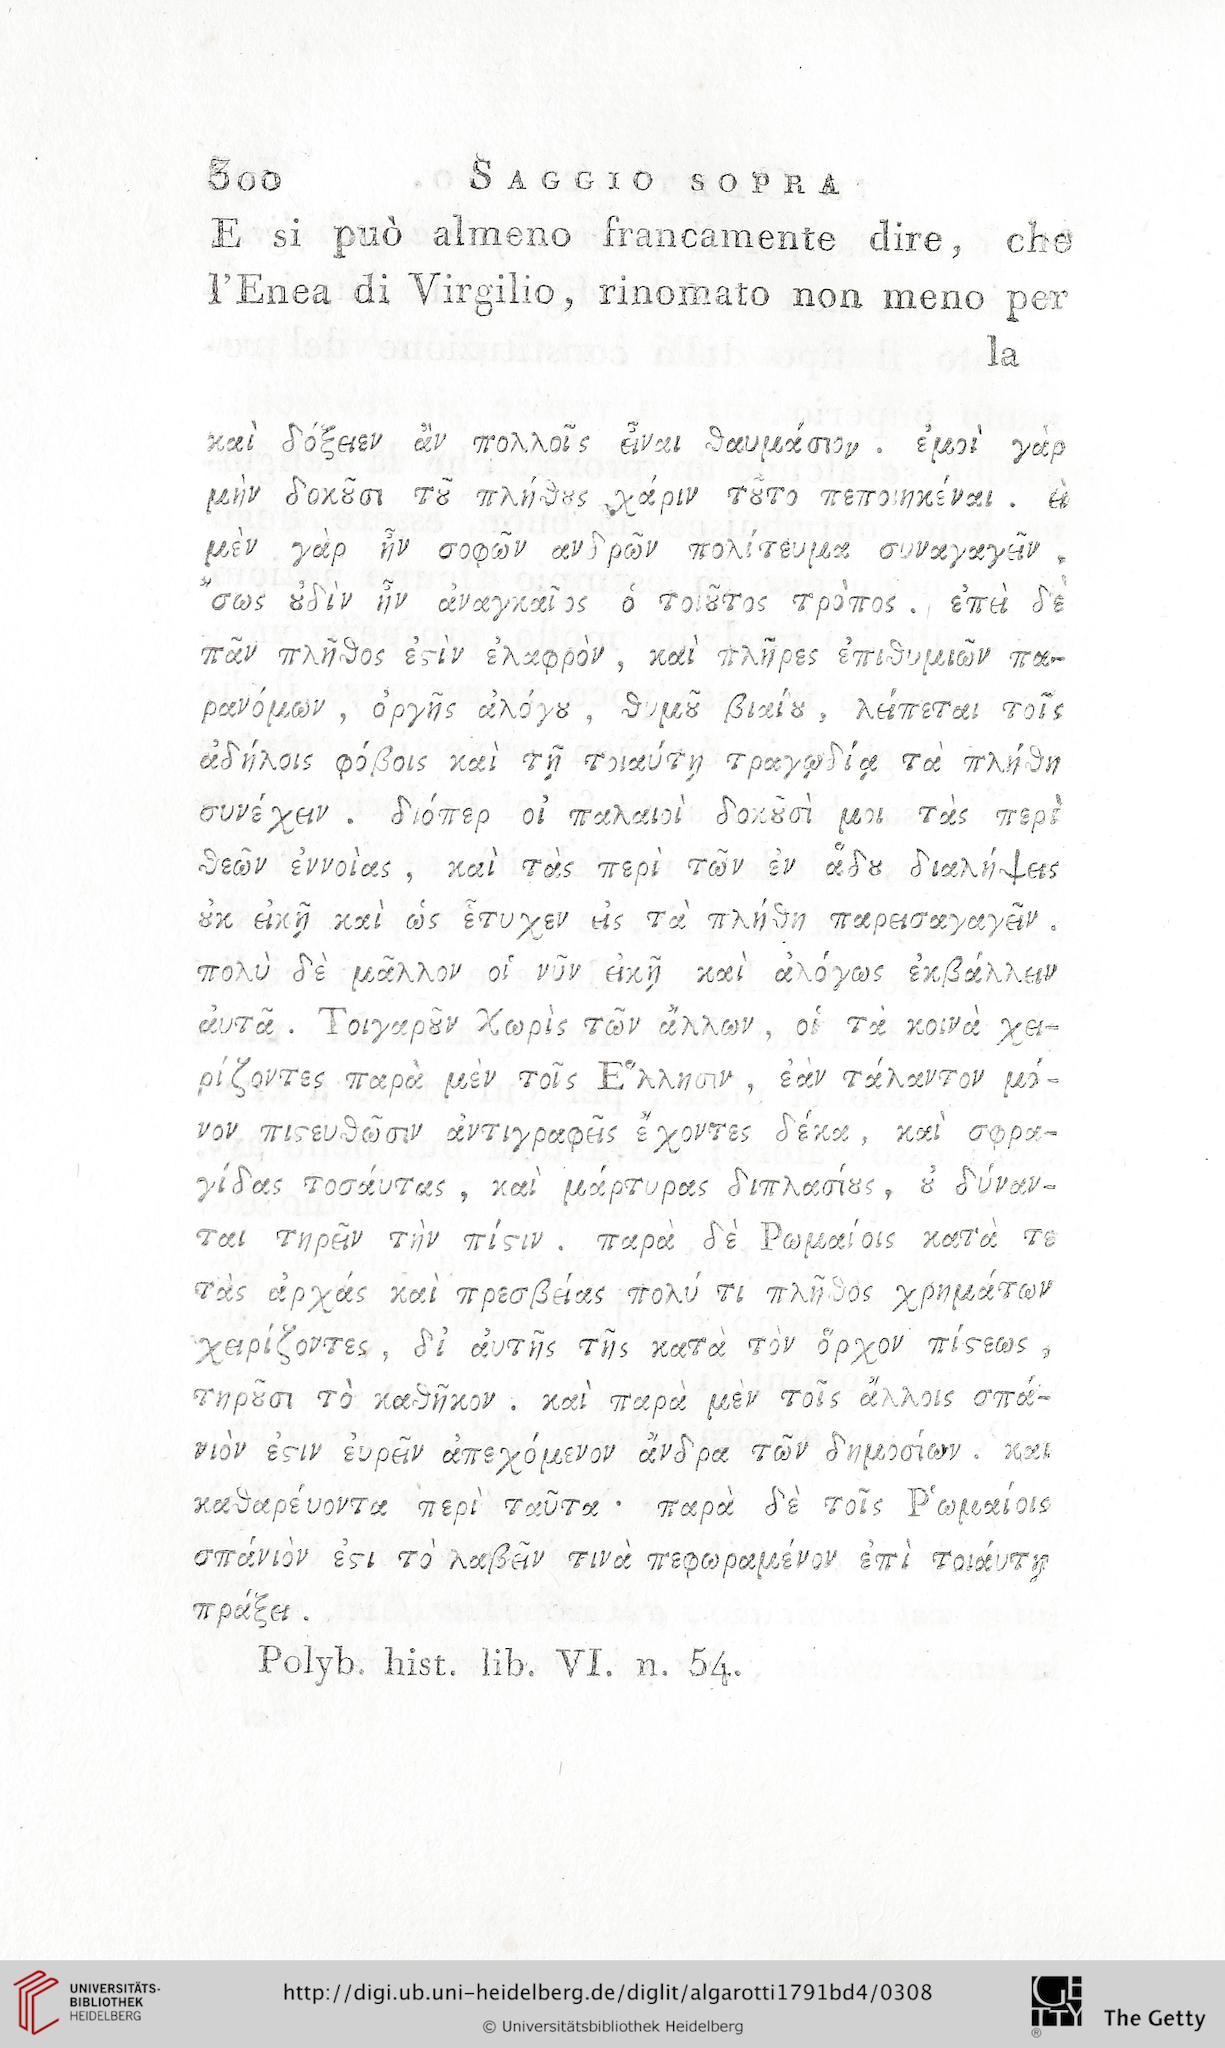 300 SAGGIO SOPRA
E si può almeno francamente dire, che
l'Enea di Virgilio, rinomato non meno per
la
καὶ δόξειεν ἂν πολλοῖς εἶναι θαυμάσιον. ἐμοὶ γὰρ
μὴν δοκȣ̃σι τȣ̃ πλήθȣς χάριν τȣ̃το πεποιηκέναι. εἰ
μὲν γὰρ ἦν σοφῶν ανδρῶν πολίτευμα συναγαγεῖν,
ἴσως ȣ̓δὶν ἦν ἀναγκαῖος ὁ τοιȣ̃τος τρόπος. ἐπεὶ δὲ
πᾶν πλῆθος ἐϛὶν ἐλαφρὸν, καὶ πλῆρες ἐπιθυμιῶν πα-
ρανόμων, ὀργῆς ἀλόγȣ, θυμȣ̃ βιαίȣ, λείπεται τοῖς
ἀδήλοις φόβοις καὶ τῇ τοιαύτῃ τραγῳδίᾳ τὰ πλήθη
συνέχειν. διόπερ οἱ παλαιοὶ δοκȣ̃σὶ μοι τὰς περὶ
θεῶν ἐννοίας, καὶ τὰς περὶ τῶν ἐν ᾅδȣ διαλήψεις
ȣ̓κ εἰκῆ καὶ ὡς ἔτυχεν εἰς τὰ πλήθη παρεισαγαγεῖν.
πολὺ δὲ μᾶλλον οἱ νῦν εἰκῆ καὶ ἀλόγως ἐκβάλλειν
ἀυτᾶ. Τοιγαρȣ̃ν Χωρὶς τῶν ἄλλων, οἱ τὰ κοινὰ χει-
ρίζοντες παρὰ μὲν τοῖς Ἕλλησιν, ἐὰν τάλαντον μό-
νον πιϛευθῶσιν ἀντιγραφεῖς ἔχοντες δέκα, καὶ σφρα-
γίδας τοσάυτας, καὶ μάρτυρας διπλασίȣς, ȣ̓ δύναν-
ται τηρεῖν τὴν πίϛιν. παρὰ δὲ Ρωμαίοις κατὰ τε
τὰς ἀρχάς καὶ πρεσβείας πολύ τι πλῆθος χρημάτων
χειρίζοντες, δἰ ἀυτῆς τῆς κατὰ τὸν ὅρχον πίϛεως,
τηρȣ̃σι τὸ καθῆκον. καὶ παρὰ μὲν τοῖς ἄλλοις σπά-
νιὸν ἐϛιν ἐυρεῖν ἀπεχόμενον ἄνδρα τῶν δημοσίων. και
καθαρέυοντα περὶ ταῦτα· παρὰ δὲ τοῖς Ῥωμαίοις
σπάνιὸν ἐϛι τὸ λαβεῖν τινὰ πεφωραμένον ἐπὶ τοιάυτῃ
πράξει.
Polyb. hist. lib. VI. n. 54.
UNIVERSITÄTS-
BIBLIOTHEK
HEIDELBERG
http://digi.ub.uni-heidelberg.de/diglit/algarotti1791bd4/0308
© Universitätsbibliothek Heidelberg
GETTY
The Getty